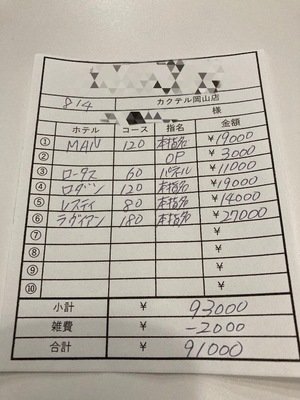 8/4
カクテル岡山店
様
ホテル コース 指名 金額
① MAN 120 本指名 ¥19000
② OP ¥3000
③ ロータス 60 パネル ¥11000
④ 120 本指名 ¥19000
⑤ レスティ 80 本指名 ¥14000
⑥ 180 本指名 ¥27000
⑦ ¥
⑧ ¥
⑨ ¥
⑩ ¥
小計 ¥ 93000
雑費 ¥ -2000
合計 ¥ 91000